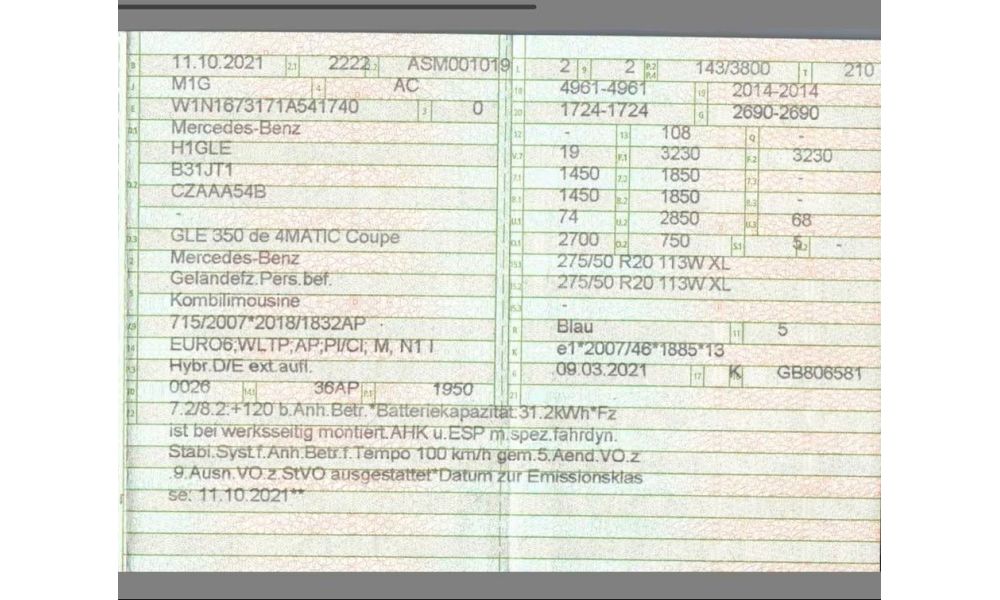 B 11.10.2021 2.1 2222 2.2 ASM001019
J M1G 4 AC
E W1N1673171A541740 3 0
D.1 Mercedes-Benz
H1GLE
B31JT1
D.2 CZAAA54B
-
D.3 GLE 350 de 4MATIC Coupe
2 Mercedes-Benz
Geländefz.Pers.bef.
5 Kombilimousine
V.9 715/2007*2018/1832AP
14 EURO6;WLTP;AP;PI/CI, M, N1 I
P.3 Hybr.D/E ext.aufl.
10 0026 14.1 36AP P.1 1950
22 7.2/8.2:+120 b.Anh.Betr.*Batteriekapazität:31.2kWh*Fz
ist bei werksseitig montiert.AHK u.ESP m.spez.fahrdyn.
Stabi.Syst.f.Anh.Betr.f.Tempo 100 km/h gem.5.Aend.VO.z
.9.Ausn.VO.z.StVO ausgestattet*Datum zur Emissionsklas
se: 11.10.2021**
L 2 9 2 P.2 P.4 143/3800 T 210
18 4961-4961 19 2014-2014
20 1724-1724 G 2690-2690
12 - 13 108 Q -
V.7 19 F.1 3230 F.2 3230
7.1 1450 7.2 1850 7.3 -
8.1 1450 8.2 1850 8.3 -
U.1 74 U.2 2850 U.3 68
O.1 2700 O.2 750 S.1 5 S.2 -
15.1 275/50 R20 113W XL
15.2 275/50 R20 113W XL
15.3 -
R Blau 11 5
K e1*2007/46*1885*13
6 09.03.2021 17 K 16 GB806581
21